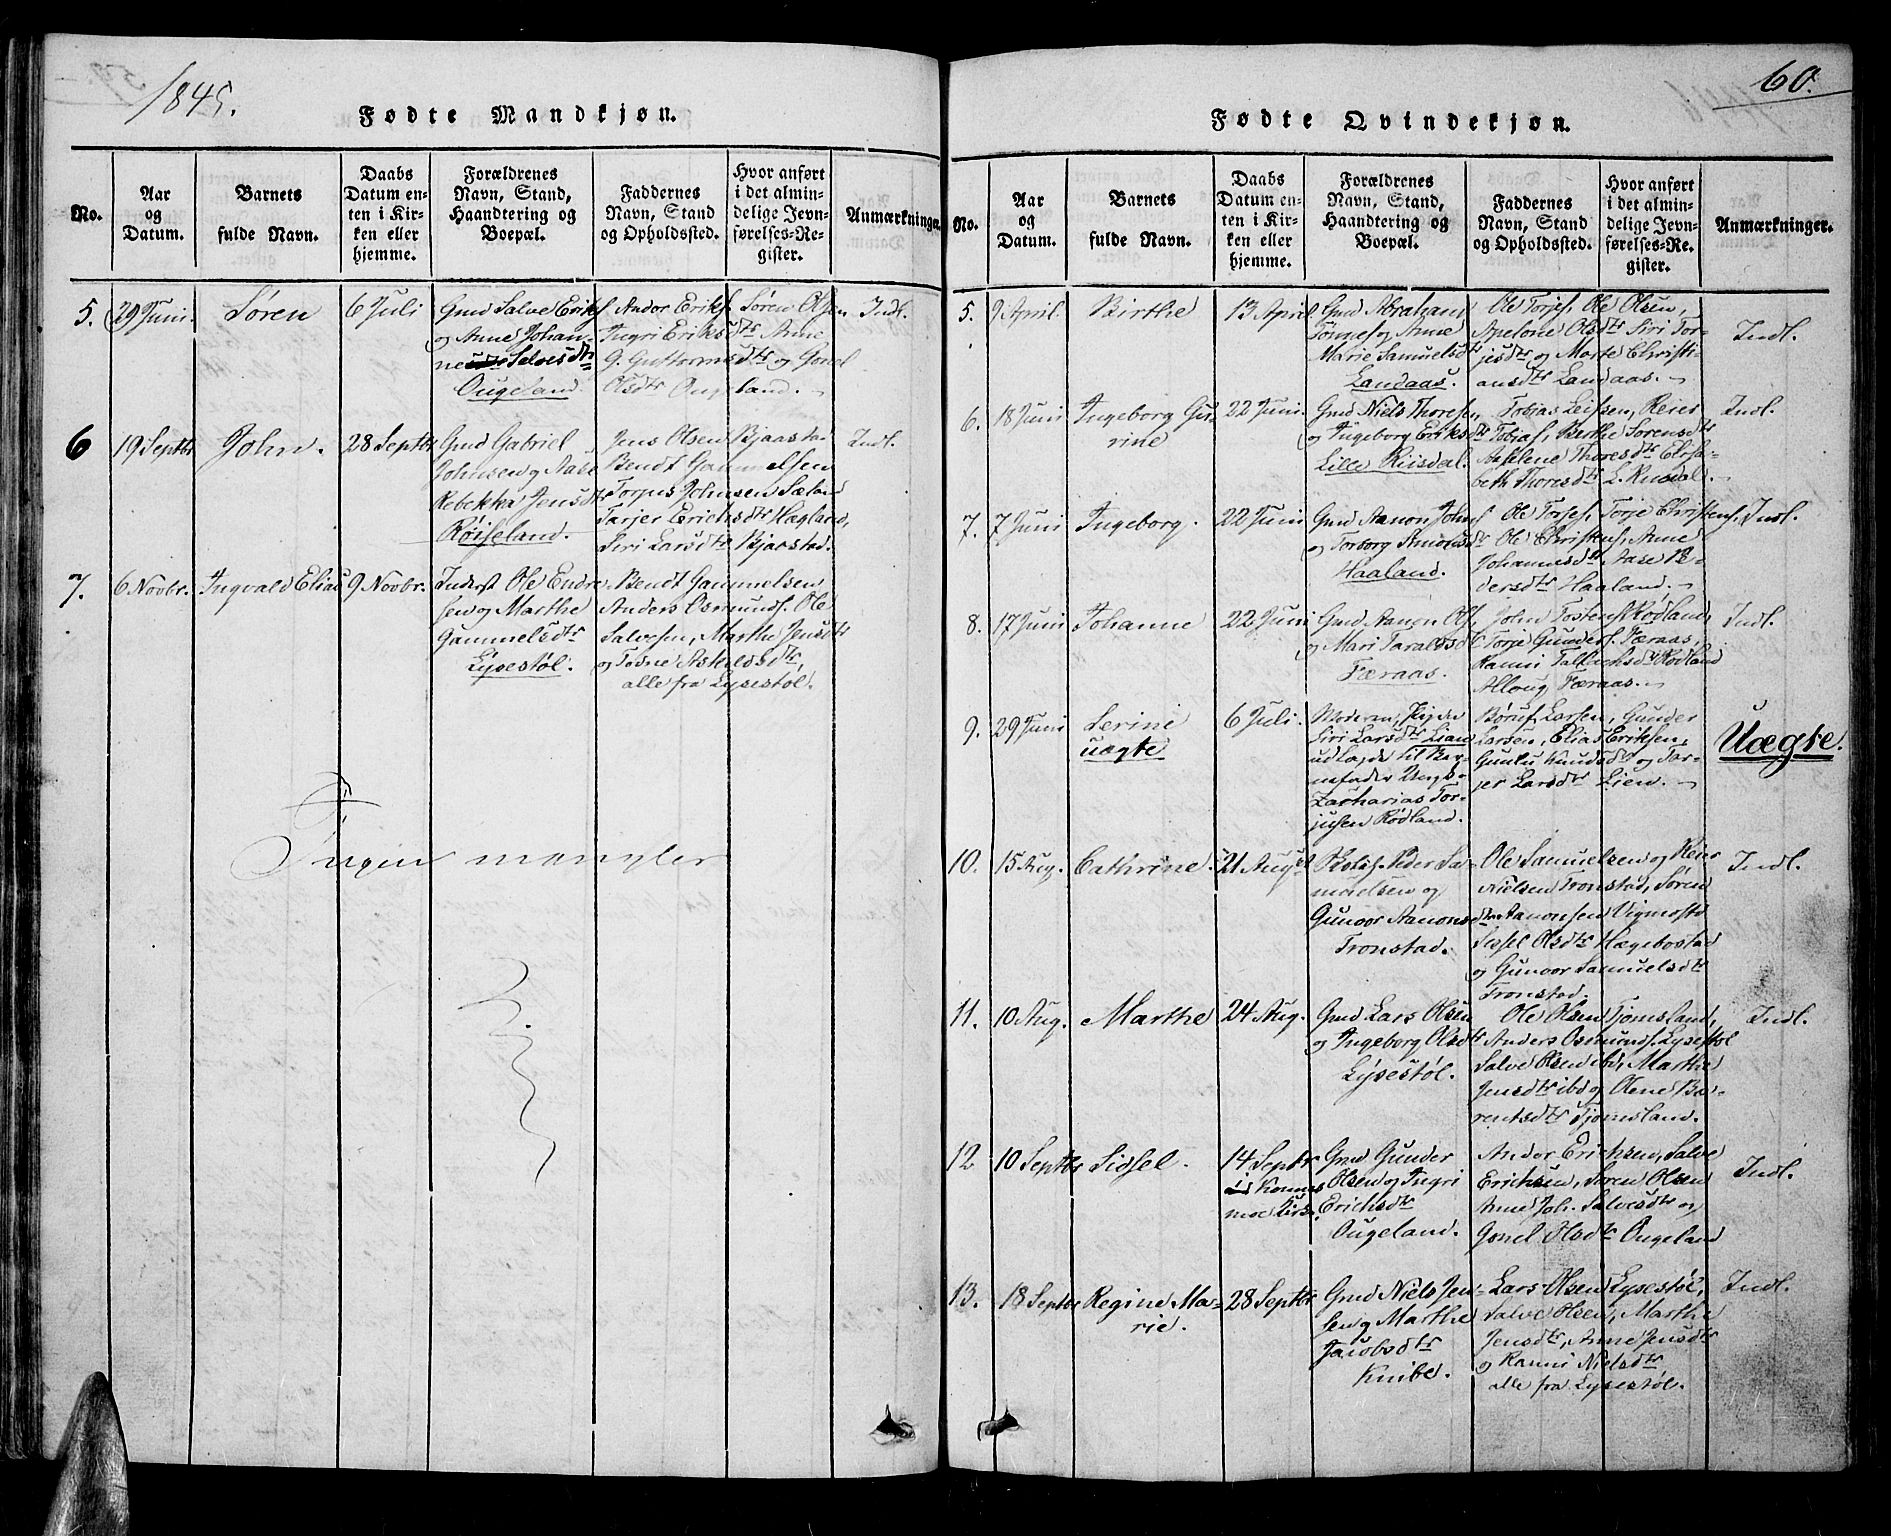 1845.
Fødte Mandkjøn.
No.
Aar
og
Datum.
Barnets
fulde Navn.
Daabs
Datum en-
ten i Kir-
ken eller
hjemme.
Forældrenes
Navn, Stand,
Haandtering og
Boepæl.
Faddernes
Navn, Stand
og Opholdssted.
Hvor anført
i det almin-
delige Jevn-
førelses-Re-
gister.
Anmærkninger
5.
29 Juni
Søren
6 Juli
Gmd Salve Eriks
og Anne Johan-
ne Salvesdtr
Ougeland
Andor Eriks. Søren Olsen
Ingri Eriksdtr Anne
G. Guttormsdtr og Gonel
Olsdtr Ougeland.
Indl.
6
19 Septbr
John.
28 Septbr
Gmd Gabriel
Johnsen og Aase
Rebekka Jensdtr
Røiseland.
Jens Olsen Bjaastad
Bendt Gammelsen
Torpus Johnsen Sæland
Tarjer Erichsdtr Hægland,
Siri Larsdtr Bjaastad.
Indl.
7.
6 Novbr.
Ingvald Elias
9 Novbr.
Inderst Ole Endre
sen og Marthe
Gammelsdtr
Lysestøl.
Bendt Gammelsen
Anders Osmunds. Ole
Salvesen, Marthe Jensdtr
og Tosne Askjelsdtr,
alle fra Lysestøl.
Ingen mangler
60.
Fødte Qvindekjøn.
No.
Aar
og
Datum.
Barnets
fulde Navn.
Daabs
Datum en-
ten i Kir-
ken eller
hjemme.
Forældrenes
Navn, Stand,
Haandtering og
Boepæl.
Faddernes
Navn, Stand
og Opholdssted.
Hvor anført
i det almin-
delige Jevn-
førelses-Re-
gister.
Anmærkninger.
5.
9 April.
Birthe
13 April
Gmd Abraham
Tønnes og Anne
Marie Samuelsdtr
Landaas.
Ole Torjes, Ole Olsen,
Apelone Olsdtr Siri Tor-
jesdtr og Marte Christi-
ansdtr Landaas.
Indl.
6.
18 Juni
Ingeborg Gu-
rine
22 Juni.
Gmd Niels Thorsen
og Ingeborg Eriksdtr
Lille Riisdal.
Tobias Leifsen, Reier
Tobias, Berthe Sørensdtr
Aaselene Thoresdtr Elisa-
beth Thoresdtr L. Riisdal.
Indl.
7.
7 Juni
Ingeborg.
22 Juni
Gmd Aanon Johns
og Torborg Amonsdtr
Haaland.
Ole Torjes, Torje Christens,
Ole Christens, Anne
Johannesdtr Aase Pe-
dersdtr Haaland.
Indl.
8.
17 Juni
Johanne
22 Juni
Gmd Aanon Ols
og Mari Taraldsd
Færaas.
John Tostens Rødland,
Torje Gunders. Færaas,
Ranni Tallachsdtr Rødland
Alloug Færaas.
Indl.
9.
29 Juni
Serine
uægte
6 Juli.
Moderen, Pigen
Siri Larsdtr Lian
udlagde til Bar-
nefader Ungk.
Zacharias Tor-
jusen Rødland.
Børuf Larsen, Gunder
Larsen, Elias Eriksen,
Gunlu Knudsdtr og Tar-
jer Larsdtr Lien.
Uægte.
10.
15 Aug.
Cathrine.
21 August
Peder Sa-
muelsen og
Gunvor Aanonsdtr
Tronstad.
Ole Samuelsen og Reier
Nielsen Tronstad, Søren
Aanonsen Vigmostd
Sissel Olsdtr Hægebostad
og Gunvor Samuelsdtr
Tronstad.
Indl.
11.
10 Aug.
Marthe
24 Aug.
Gmd Lars Olsen
og Ingeborg Olsdtr
Lysestøl.
Ole Olsen Tjomsland,
Anders Osmunds. Lysestøl
Salve Olsen ibd, Marthe
Jensdtr ibd og Olene Be-
rentsdtr Tjomsland.
Indl.
12
10 Septbr
Sidsel.
14 Septbr
i Konnes
moe Kirk.
Gmd Gunder
Olsen og Ingri
Erichsdtr
Ougeland.
Andor Erichsen, Salve
Erichsen, Søren Olsen
Anne Joh. Salvesdtr og
Gonel Olsdtr Ougeland
Indl.
13.
18 Septbr
Regine Ma-
rie.
28 Septbr
Gmd Niels Jen-
sen og Marthe
Jacobsdtr
Knibe.
Lars Olsen Lysestøl,
Salve Olsen, Marthe
Jensdtr, Anne Jensdtr
og Ranni Nielsdtr
alle fra Lysestøl.
Indl.